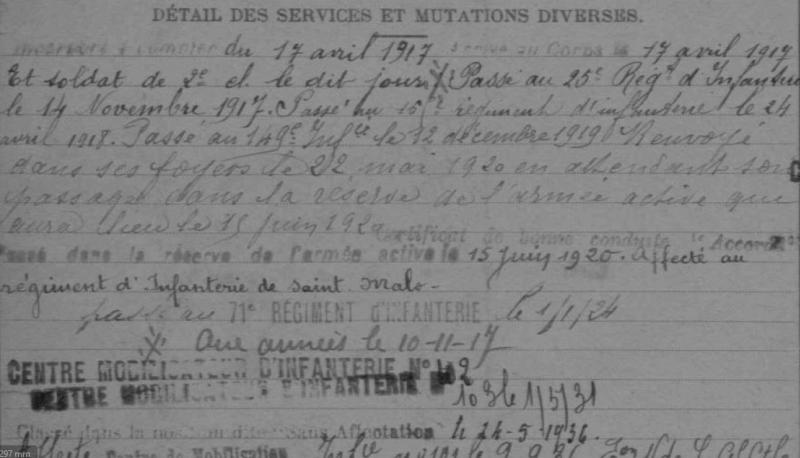 DÉTAIL DES SERVICES ET MUTATIONS DIVERSES.
du 17 avril 1917 arrivé au Corps le 17 avril 1917
Et soldat de 2e cl. le dit jour. X Passé au 25e Régt d'Infanterie
le 14 Novembre 1917. Passé au régiment d'infanterie le 24
avril 1918. Passé au 149e Infie le 12 décembre 1919 Renvoyé
dans ses foyers le 22 mai 1920 en attendant son
passage dans la réserve de l'armée active qui
aura lieu le 15 juin 1920
Certificat de bonne conduite "Accordé"
Passé dans la réserve de l'armée active le 15 Juin 1920. Affecté au
régiment d'Infanterie de Saint Malo-
passé au 71e RÉGIMENT D'INFANTERIE le 1/1/24
X Aux armées le 10-11-17
CENTRE MOBILISATEUR D'INFANTERIE No
CENTRE MOBILISATEUR D'INFANTERIE No
103 le 1/5/31
Classé dans la position dite "Sans Affectation" le 24-5-1936.
Centre de Mobilisation
297 mm